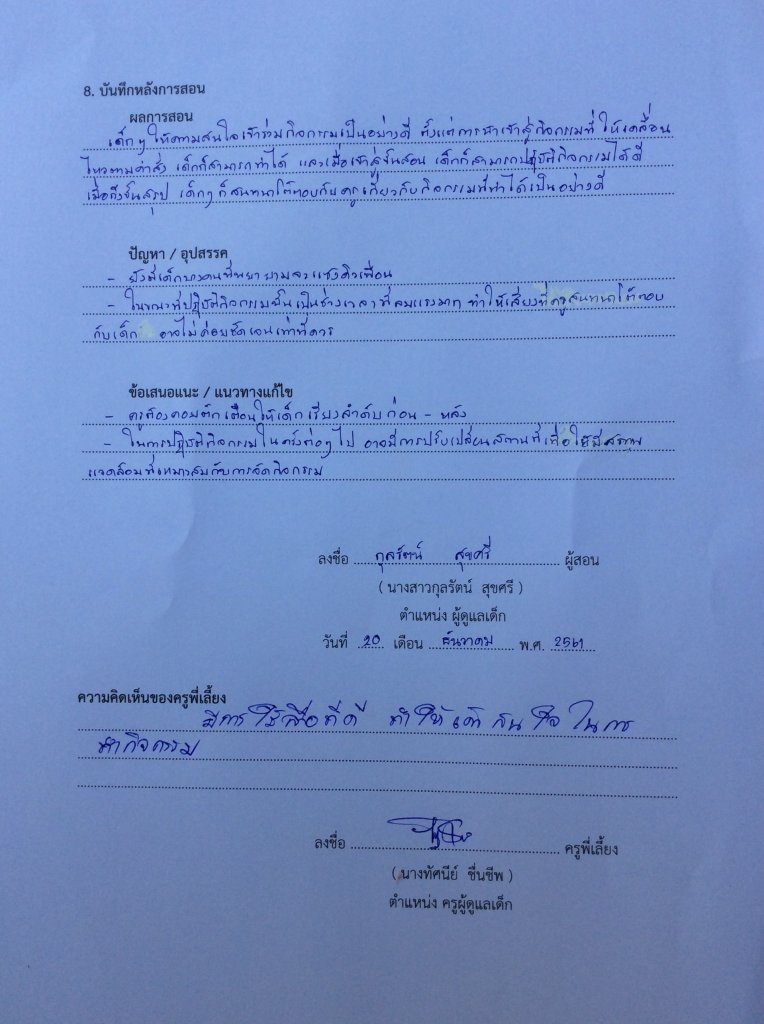 8. บันทึกหลังการสอน
ผลการสอน
เด็กๆ ให้ความสนใจเข้าร่วมกิจกรรมเป็นอย่างดี ตั้งแต่การนำเข้าสู่กิจกรรมที่ให้เคลื่อน
ไหวตามคำสั่ง เด็กก็สามารถทำได้ และเมื่อเข้าสู่ขั้นสอน เด็กก็สามารถปฏิบัติกิจกรรมได้ดี
เมื่อถึงขั้นสรุป เด็กๆ ก็สนทนาโต้ตอบกับครูเกี่ยวกับกิจกรรมที่ทำได้เป็นอย่างดี
ปัญหา / อุปสรรค
- ยังมีเด็กบางคนที่พยายามจะแซงคิวเพื่อน
- ในขณะที่ปฏิบัติกิจกรรมนั้นเป็นช่วงเวลาที่ลมแรงมาก ทำให้เสียงที่ครูสนทนาโต้ตอบ
กับเด็ก อาจไม่ค่อยชัดเจนเท่าที่ควร
ข้อเสนอแนะ / แนวทางแก้ไข
- ครูต้องคอยตักเตือนให้เด็กเรียงลำดับก่อน - หลัง
- ในการปฏิบัติกิจกรรมในครั้งต่อๆ ไป อาจมีการปรับเปลี่ยนสถานที่เพื่อให้มีสภาพ
แวดล้อมที่เหมาะสมกับการจัดกิจกรรม
ลงชื่อ กุลรัตน์ สุขศรี ผู้สอน
( นางสาวกุลรัตน์ สุขศรี )
ตำแหน่ง ผู้ดูแลเด็ก
วันที่ 20 เดือน ธันวาคม พ.ศ. 2561
ความคิดเห็นของครูพี่เลี้ยง
มีการใช้สื่อที่ดี ทำให้เด็กสนใจในการ
ทำกิจกรรม
ลงชื่อ ครูพี่เลี้ยง
( นางทัศนีย์ ชื่นชีพ )
ตำแหน่ง ครูผู้ดูแลเด็ก